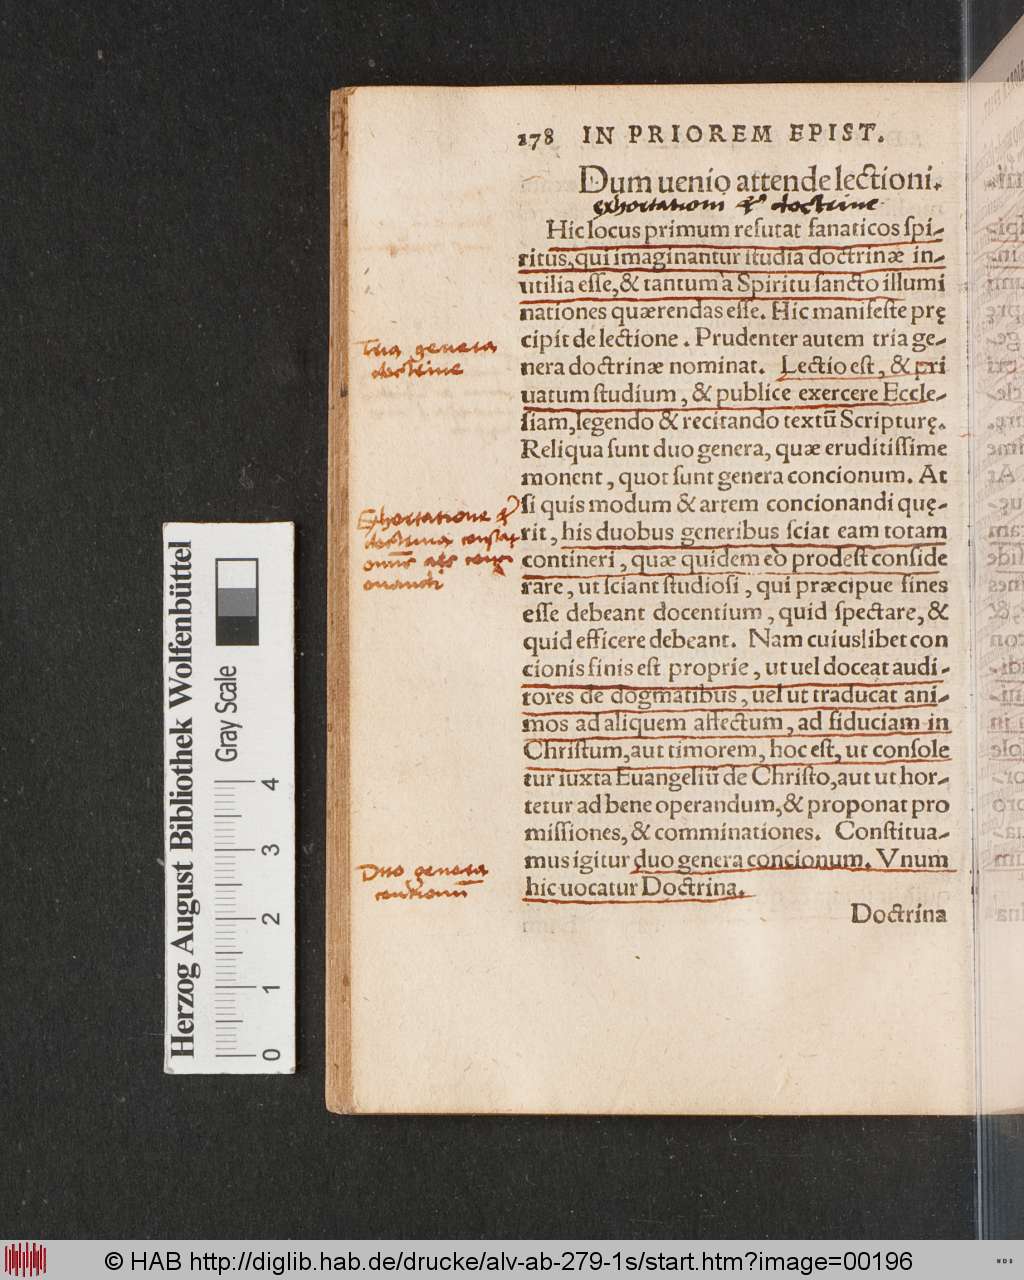 178 IN PRIOREM EPIST.
Dum uenio attende lectioni.
exhortationi & doctrine
Hic locus primum refutat fanaticos spi-
ritus, qui imaginantur studia doctrinæ in-
utilia esse, & tantum à Spiritu sancto illumi
nationes quærendas esse. Hic manifeste prę
cipit de lectione. Prudenter autem tria ge-
nera doctrinæ nominat. Lectio est, & pri
uatum studium, & publice exercere Eccle-
siam, legendo & recitando textū Scripturę.
Reliqua sunt duo genera, quæ eruditissime
monent, quot sunt genera concionum. At
si quis modum & artem concionandi quę-
rit, his duobus generibus sciat eam totam
contineri, quæ quidem eò prodest conside
rare, ut sciant studiosi, qui præcipue fines
esse debeant docentium, quid spectare, &
quid efficere debeant. Nam cuiuslibet con
cionis finis est proprie, ut uel doceat audi-
tores de dogmatibus, uel ut traducat ani-
mos ad aliquem affectum, ad fiduciam in
Christum, aut timorem, hoc est, ut console
tur iuxta Euangeliū de Christo, aut ut hor-
tetur ad bene operandum, & proponat pro
missiones, & comminationes. Constitua-
mus igitur duo genera concionum. Vnum
hic uocatur Doctrina.
Doctrina
Tria genera
doctrine
Exhortatione &
doctrina constat
omnis ars conci
onandi
Duo genera
concionū
Herzog August Bibliothek Wolfenbüttel
Gray Scale
0 1 2 3 4
© HAB http://diglib.hab.de/drucke/alv-ab-279-1s/start.htm?image=00196